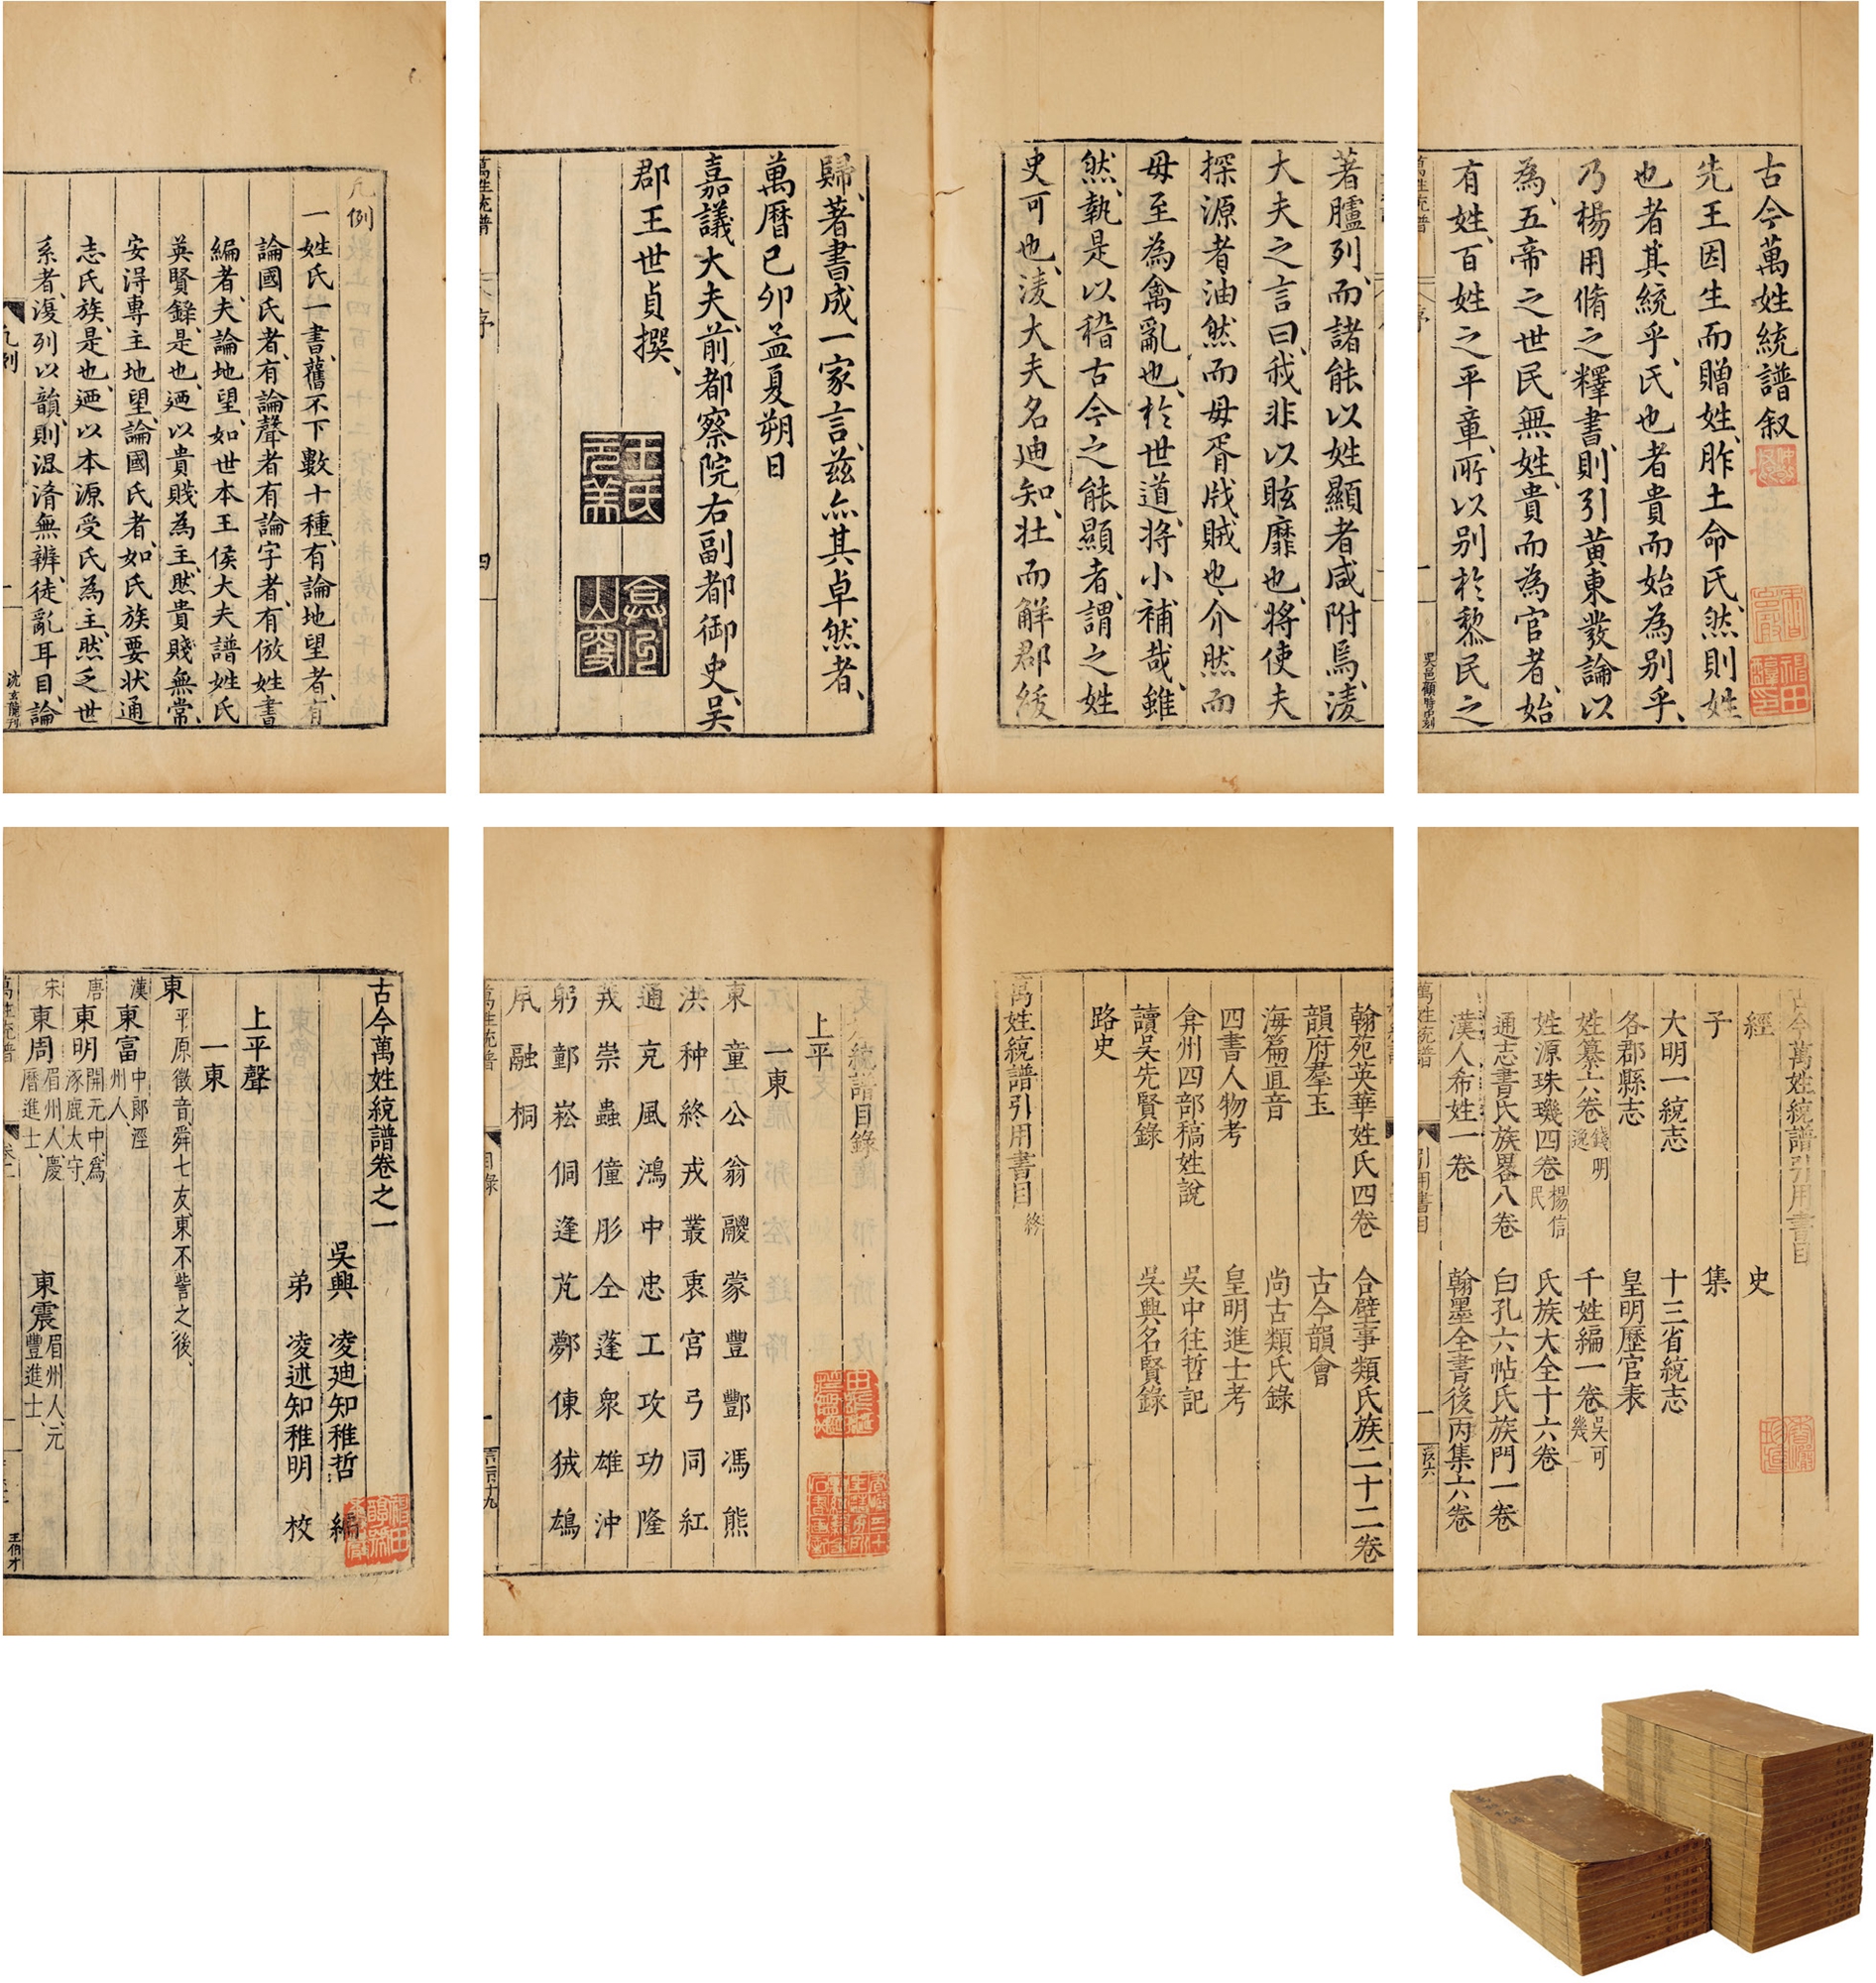 古今萬姓統譜叙
先王因生而贈姓、胙土命氏、然則姓
也者其統乎、氏也者貴而始為別乎、
乃楊用脩之釋書、則引黄東發論以
為、五帝之世民無姓、貴而為官者、始
有姓、百姓之平章、所以别於黎民之
著臚列、而諸能以姓顯者咸附焉、淩
大夫之言曰、我非以眩靡也、將使夫
探源者油然而毋胥戕賊也、介然而
毋至為禽亂也、於世道、將小補哉、雖
然、執是以稽古今之能顯者、謂之姓
史可也、淩大夫名迪知、壯而觧郡綬
歸、著書成一家言、兹亦其卓然者、
萬曆己夘孟夏朔日
嘉議大夫、前都察院右副都御史、吳
郡王世貞撰、
萬姓統譜
序
四
凡例
一姓氏一書、舊不下數十種、有論地望者、有
論國氏者、有論聲者有論字者、有倣姓書
編者、夫論地望、如世本王侯大夫譜姓氏
英賢錄、是也、廼以貴賤為主、然貴賤無常、
安淂専主地望、論國氏者、如氏族要狀通
志氏族、是也、廼以本源受氏為主、然乏世
系者、復列以韻、則混淆無辨、徒亂耳目、論
凡例
古今萬姓統譜引用書目
經 史
子 集
大明一統志 十三省統志
各郡縣志 皇明歷官表
姓纂六卷 錢明逸 千姓編一卷 吳可幾
姓源珠璣四卷 楊信民 氏族大全十六卷
通志書氏族畧八卷 白孔六帖氏族門一卷
漢人希姓一卷 翰墨全書後丙集六卷
萬姓統譜
引用書目
翰苑英華姓氏四卷 合璧事類氏族二十二卷
韻府羣玉 古今韻會
海篇直音 尚古類氏錄
四書人物考 皇明進士考
弇州四部稿姓說 吳中往哲記
讀吳先賢錄 吳興名賢錄
路史
萬姓統譜引用書目 終
統譜目錄
上平
一東
東童公翁鬷蒙豐酆馮熊
洪种終戎叢衷宮弓同紅
通充風鴻中忠工攻功隆
䢇崇蟲僮肜仝蓬衆雄沖
躬鄞崧侗逢芃鄸倲狨鴆
凩融桐
萬姓統譜
目錄
古今萬姓統譜卷之一
吳興 凌廸知稚哲 編
弟 凌述知稚明 校
上平聲
一東
東 平原徵音、舜七友、東不訾之後、
漢 東富 中郎、涇州人、
唐 東明 開元中、為涿鹿太守、
宋 東周 眉州人、慶曆進士、 東震 眉州人、元豐進士、
萬姓統譜
王伯才